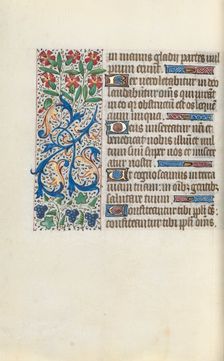 in manus gladii partes vul
pium erunt
Rex vero letabitur in deo
laudabuntur omnes qui iurant
in eo quia obstructum est os loquen
cium iniqua
Deus misereatur nostri et
benedicat nobis illuminet vul
tum suum super nos et misere
atur nostri
Ut cognoscamus in terra
viam tuam in omnibus gentibus
salutare tuum
Confiteantur tibi populi deus
confiteantur tibi populi omnes